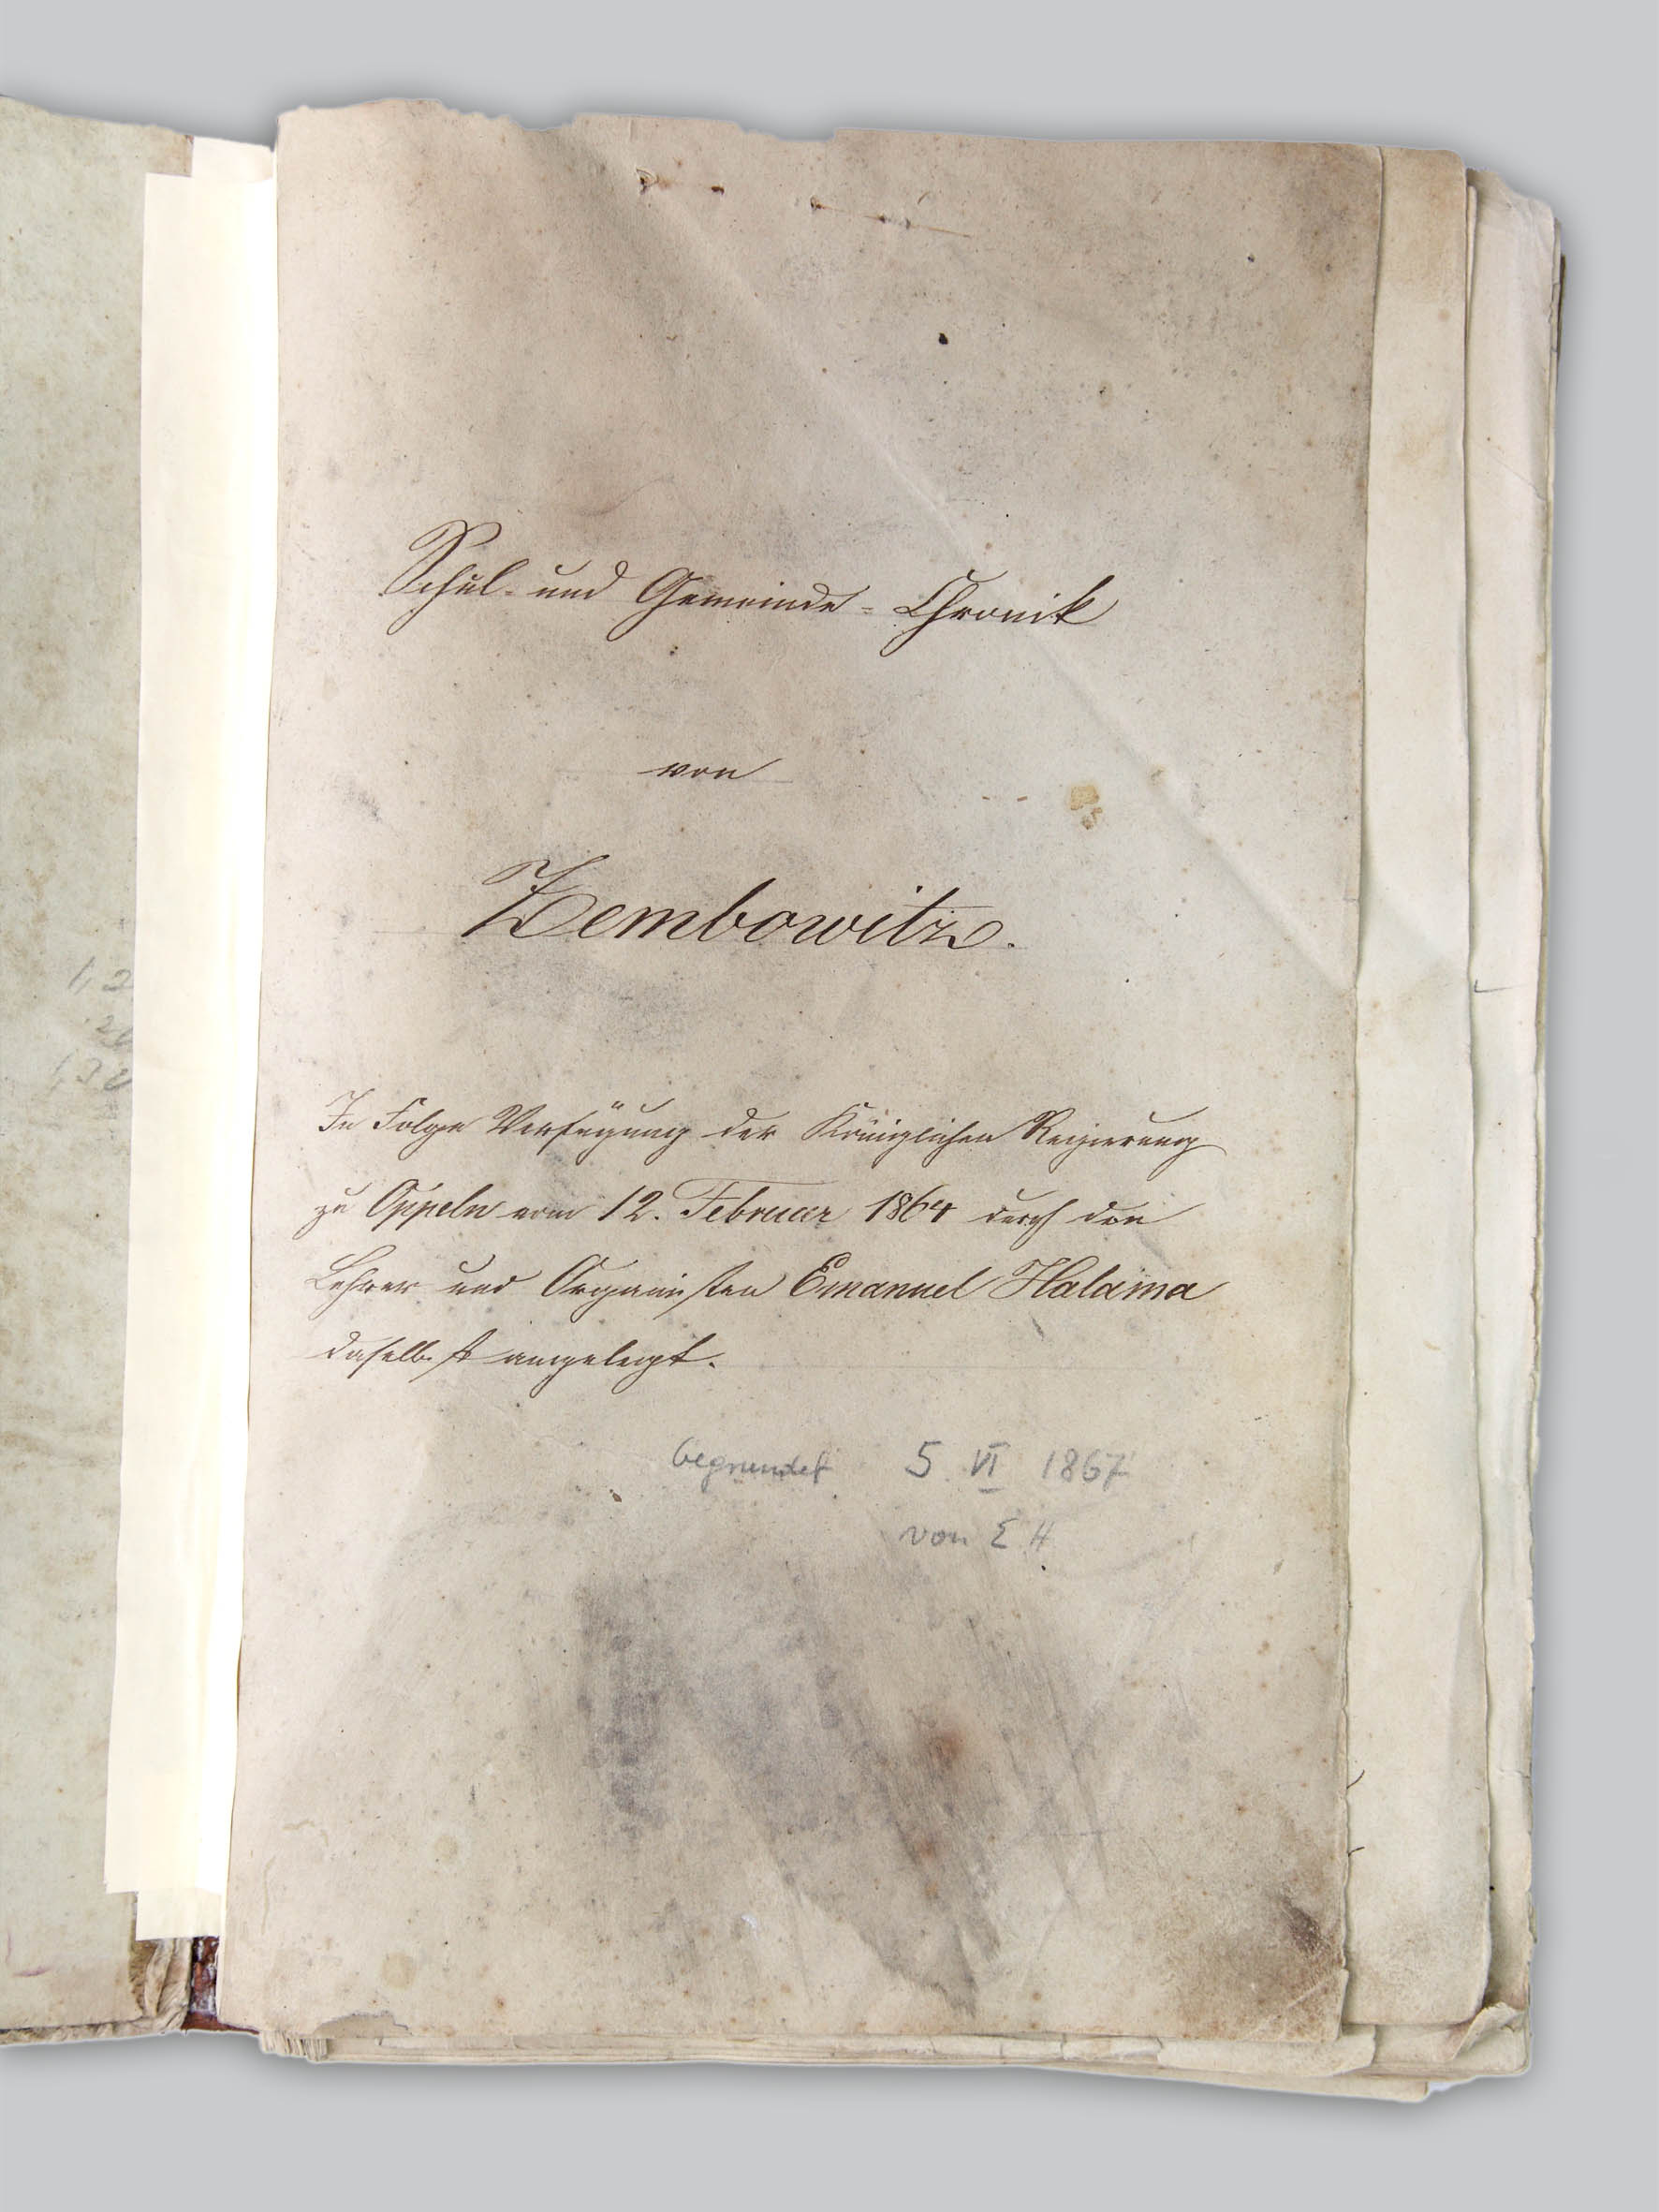 Schul- und Gemeinde-Chronik
von
Zembowitz.
In Folge Verfügung der Königlichen Regierung
zu Oppeln vom 12. Februar 1864 durch den
Lehrer und Organisten Emanuel Halama
daselbst angelegt.
begründet 5 VI 1867
von E H